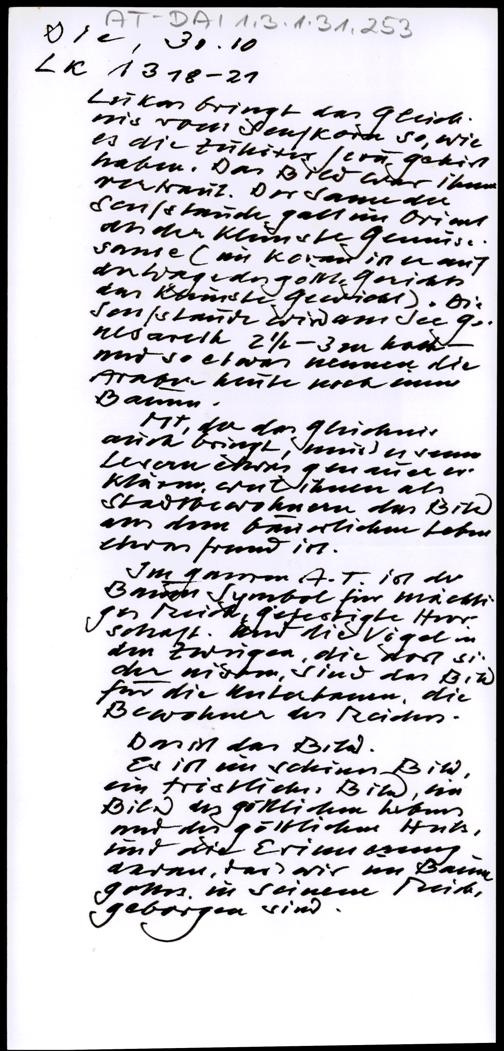 AT-DAI 1.3.1.31.253
Die, 30.10
LK 13 18-21
Lukas bringt das Gleich-
nis vom Senfkorn so, wie
es die Zuhörer gehört
haben. Das Bild war ihnen
vertraut. Der Same der
Senfstaude galt im Orient
als der kleinste Gemüse-
same (im Koran ist er auf
der Wage des göttl. Gerichts
das kleinste Gewicht). Die
Senfstaude wird am See Ge-
nesareth 2½-3m hoch
und so etwas nennen die
Araber heute noch einen
Baum.
Mt, der das Gleichnis
auch bringt, muss es seinen
Lesern etwas genauer er-
klären, weil ihnen als
Stadtbewohnern das Bild
aus dem bäuerlichen Leben
etwas fremd ist.
Im ganzen A.T. ist der
Baum Symbol für mächti-
ges Reich, gefestigte Herr-
schaft. Und die Vögel in
den Zweigen, die dort si-
cher nisten, sind das Bild
für die Untertanen, die
Bewohner des Reiches.
Das ist das Bild.
Es ist ein schönes Bild,
ein tröstliches Bild, ein
Bild des göttlichen Lebens
und des göttlichen
und die Erinnerung
daran, dass wir im Baum
Gottes, in seinem Reich,
geborgen sind.